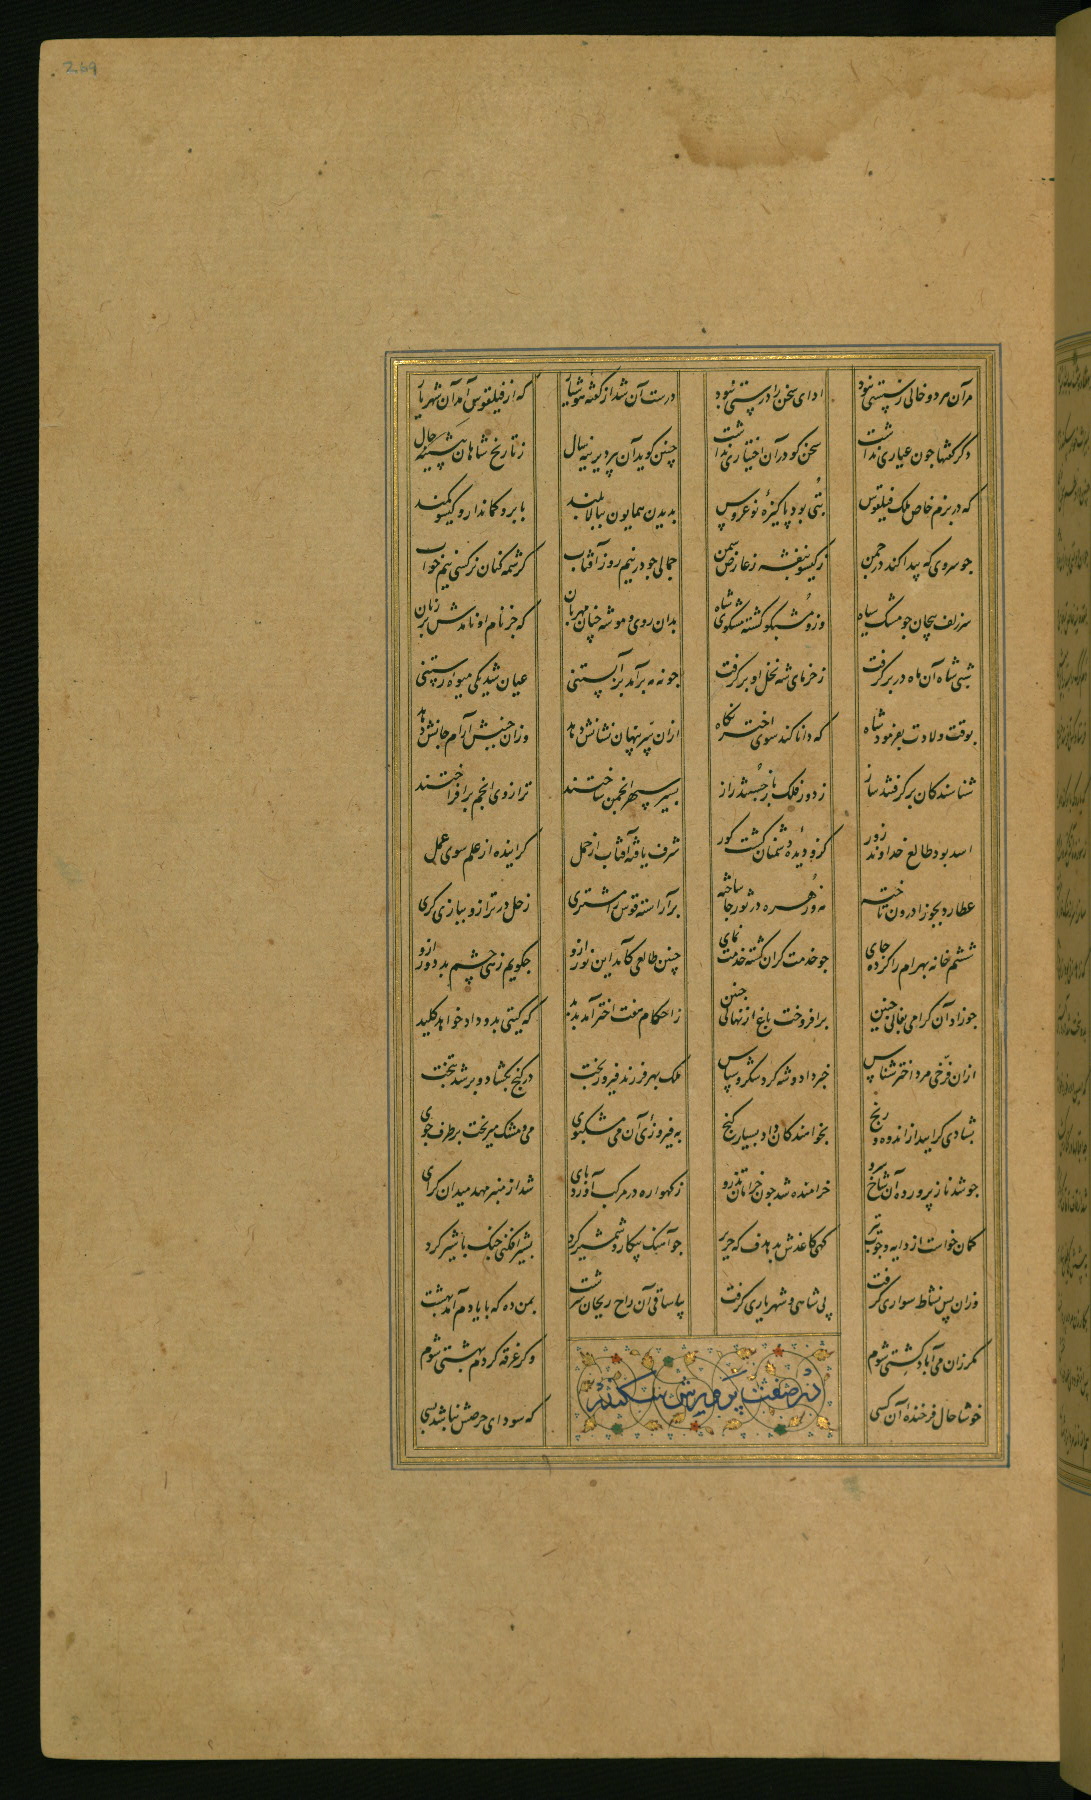 269
مرآن هر دو خالی ز پستی نبود ادای سخن را درستی نبود درست آن شد از گفته هوشیار که از فیلقوس آمد آن شهریار
دگر گفتها چون عیاری نداشت سخن گو در آن اختیاری نداشت چنین گوید آن پیر دیرینه سال ز تاریخ شاهان پیشینه حال
که در بزم خاص ملک فیلقوس بتی بود پاکیزه نوعروس بدیدن همایون ببالا بلند بابرو کماندار و گیسو کمند
چو سروی که پیدا کند در چمن ز گیسو بنفشه ز عارض سمن جمالی چو در نیم روز آفتاب کرشمه کنان نرگسی نیم خواب
سر زلف پیچان چو مشک سیاه وزو مشکبو گشته مشکوی شاه بدان روی و مو شه چنان مهربان که جز نام او نامدش بر زبان
شبی شاه آن ماه در بر گرفت ز خرمای شه نخل او بر گرفت چو نه مه برآمد بر آبستنی عیان شد یکی میوه رستنی
بوقت ولادت بفرمود شاه که دانا کند سوی اختر نگاه از آن سر پنهان نشانش دهد وزان جنبش آرام جانش دهد
شناسندگان بر گرفتند ساز ز دور فلک باز جستند راز بسیر سپهر انجمن ساختند ترازوی انجم برافراختند
اسد بود طالع خداوند زور کزو دیده دشمنان گشت کور شرف یافته آفتاب از حمل گراینده از علم سوی عمل
عطارد بجوزا درون تاخته مه و زهره در ثور جا ساخته برآراسته قوس را مشتری زحل در ترازو ببازی گری
ششم خانه بهرام را کرده جای چو خدمت گران گشته خدمت نمای چنین طالعی کآمد این نور ازو چگویم زهی چشم بد دور ازو
چو زاد آن گرامی بفالی چنین برافروخت باغ از نهالی چنین ز احکام هفت اختر آمد پدید که گیتی بدو داد خواهد کلید
از آن فرخی مرد اختر شناس خبر داد و شه کرد شکر و سپاس ملک بهر فرزند فیروز بخت در گنج بگشاد و بر شد بتخت
بشادی گرایید از اندوه و رنج بخواهندگان داد بسیار گنج به فیروزی آن می مشکبوی می و مشک میریخت بر طرف جوی
چو شد ناز پرورده آن شاخ سرو خرامنده شد چون خرامان تذرو ز گهواره در مرکب آورد پای شد از منبر مهد میدان گرای
کمان خواست از دایه و چوبه تیر گهی کاغذش بد هدف گه حریر چو آهنگ پیکار و شمشیر کرد بشیر افکنی جنگ با شیر کرد
وزان پس نشاط سواری گرفت پی شاهی و شهریاری گرفت بیا ساقی آن راح ریحان سرشت بمن ده که با یادم آمد بهشت
مگر زان می آباد کشتی شوم وگر غرقه گردم بهشتی شوم
در صفت پرورش سکندر
خوشا حال فرخنده آن کسی که سودای حرصش نباشد بسی